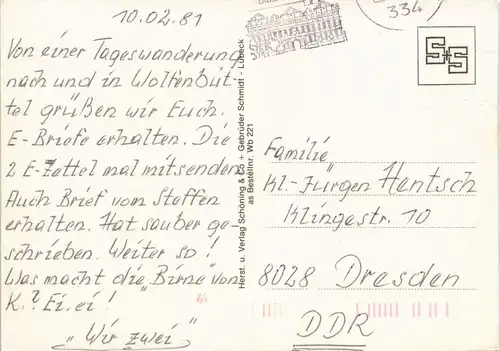 10.02.81
Von einer Tageswanderung
nach und in Wolfenbüt-
tel grüßen wir Euch.
E-Briefe erhalten. Die
2 E-Zettel mal mitsenden.
Auch Brief von Steffen
erhalten. Hat sauber ge-
schrieben. Weiter so!
Was macht die „Birne" von
K.? Ei.ei!
„Wir zwei"
Herst. u. Verlag Schöning & Co + Gebrüder Schmidt - Lübeck
as Bestellnr. Wb 221
334
S+S
Familie
Kl.-Jürgen Hentsch
Klingestr. 10
8028 Dresden
DDR